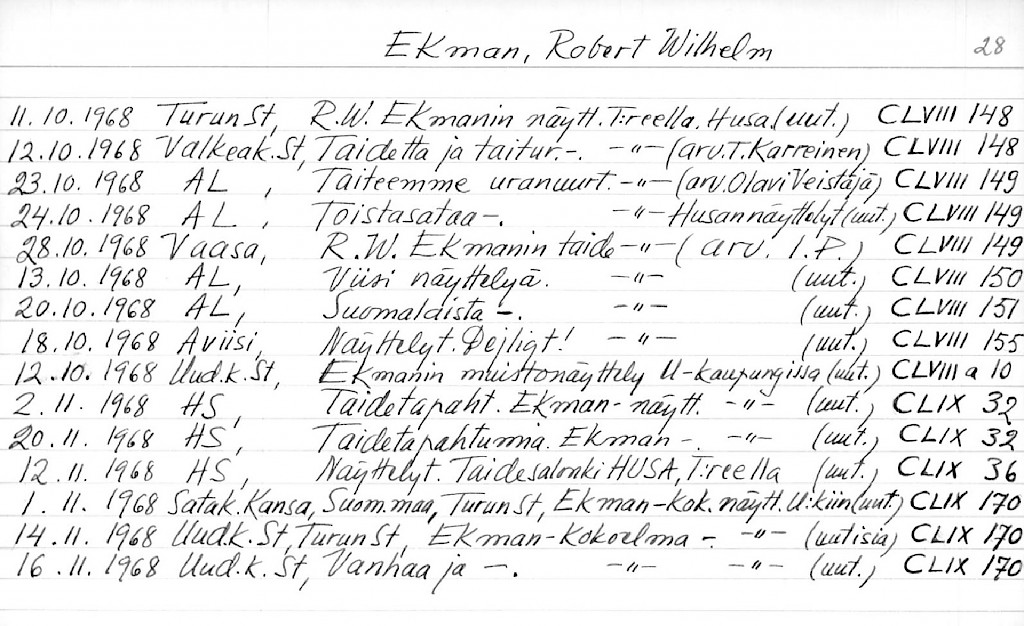 Ekman, Robert Wilhelm 28
11.10.1968 Turun St, R.W. Ekmanin näytt. T:reella. Husa. (uut.) CLVIII 148
12.10.1968 Valkeak. St, Taidetta ja taitur. -. -"- (arv. T. Karreinen) CLVIII 148
23.10.1968 AL, Taiteemme uranuurt. -"- (arv. Olavi Veistäjä) CLVIII 149
24.10.1968 AL, Toistasataa -. -"- Husan näyttelyt (uut.) CLVIII 149
28.10.1968 Vaasa, R.W. Ekmanin taide -"- (arv. I.P.) CLVIII 149
13.10.1968 AL, Viisi näyttelyä. -"- (uut.) CLVIII 150
20.10.1968 AL, Suomalaista -. -"- (uut.) CLVIII 151
18.10.1968 Aviisi, Näyttelyt. Dejligt! -"- (uut.) CLVIII 155
12.10.1968 Uud.k. St, Ekmanin muistonäyttely U-kaupungissa (uut.) CLVIII a 10
2.11.1968 HS, Taidetapaht. Ekman-näytt. -"- (uut.) CLIX 32
20.11.1968 HS, Taidetapahtumia. Ekman -. -"- (uut.) CLIX 32
12.11.1968 HS, Näyttelyt. Taidesalonki HUSA, T:reella (uut.) CLIX 36
1.11.1968 Satak. Kansa, Suom.maa, Turun St, Ekman-kok. näytt. U:kiin (uut.) CLIX 170
14.11.1968 Uud.k. St, Turun St, Ekman-kokoelma -. -"- (uutisia) CLIX 170
16.11.1968 Uud.k. St, Vanhaa ja -. -"- -"- (uut.) CLIX 170